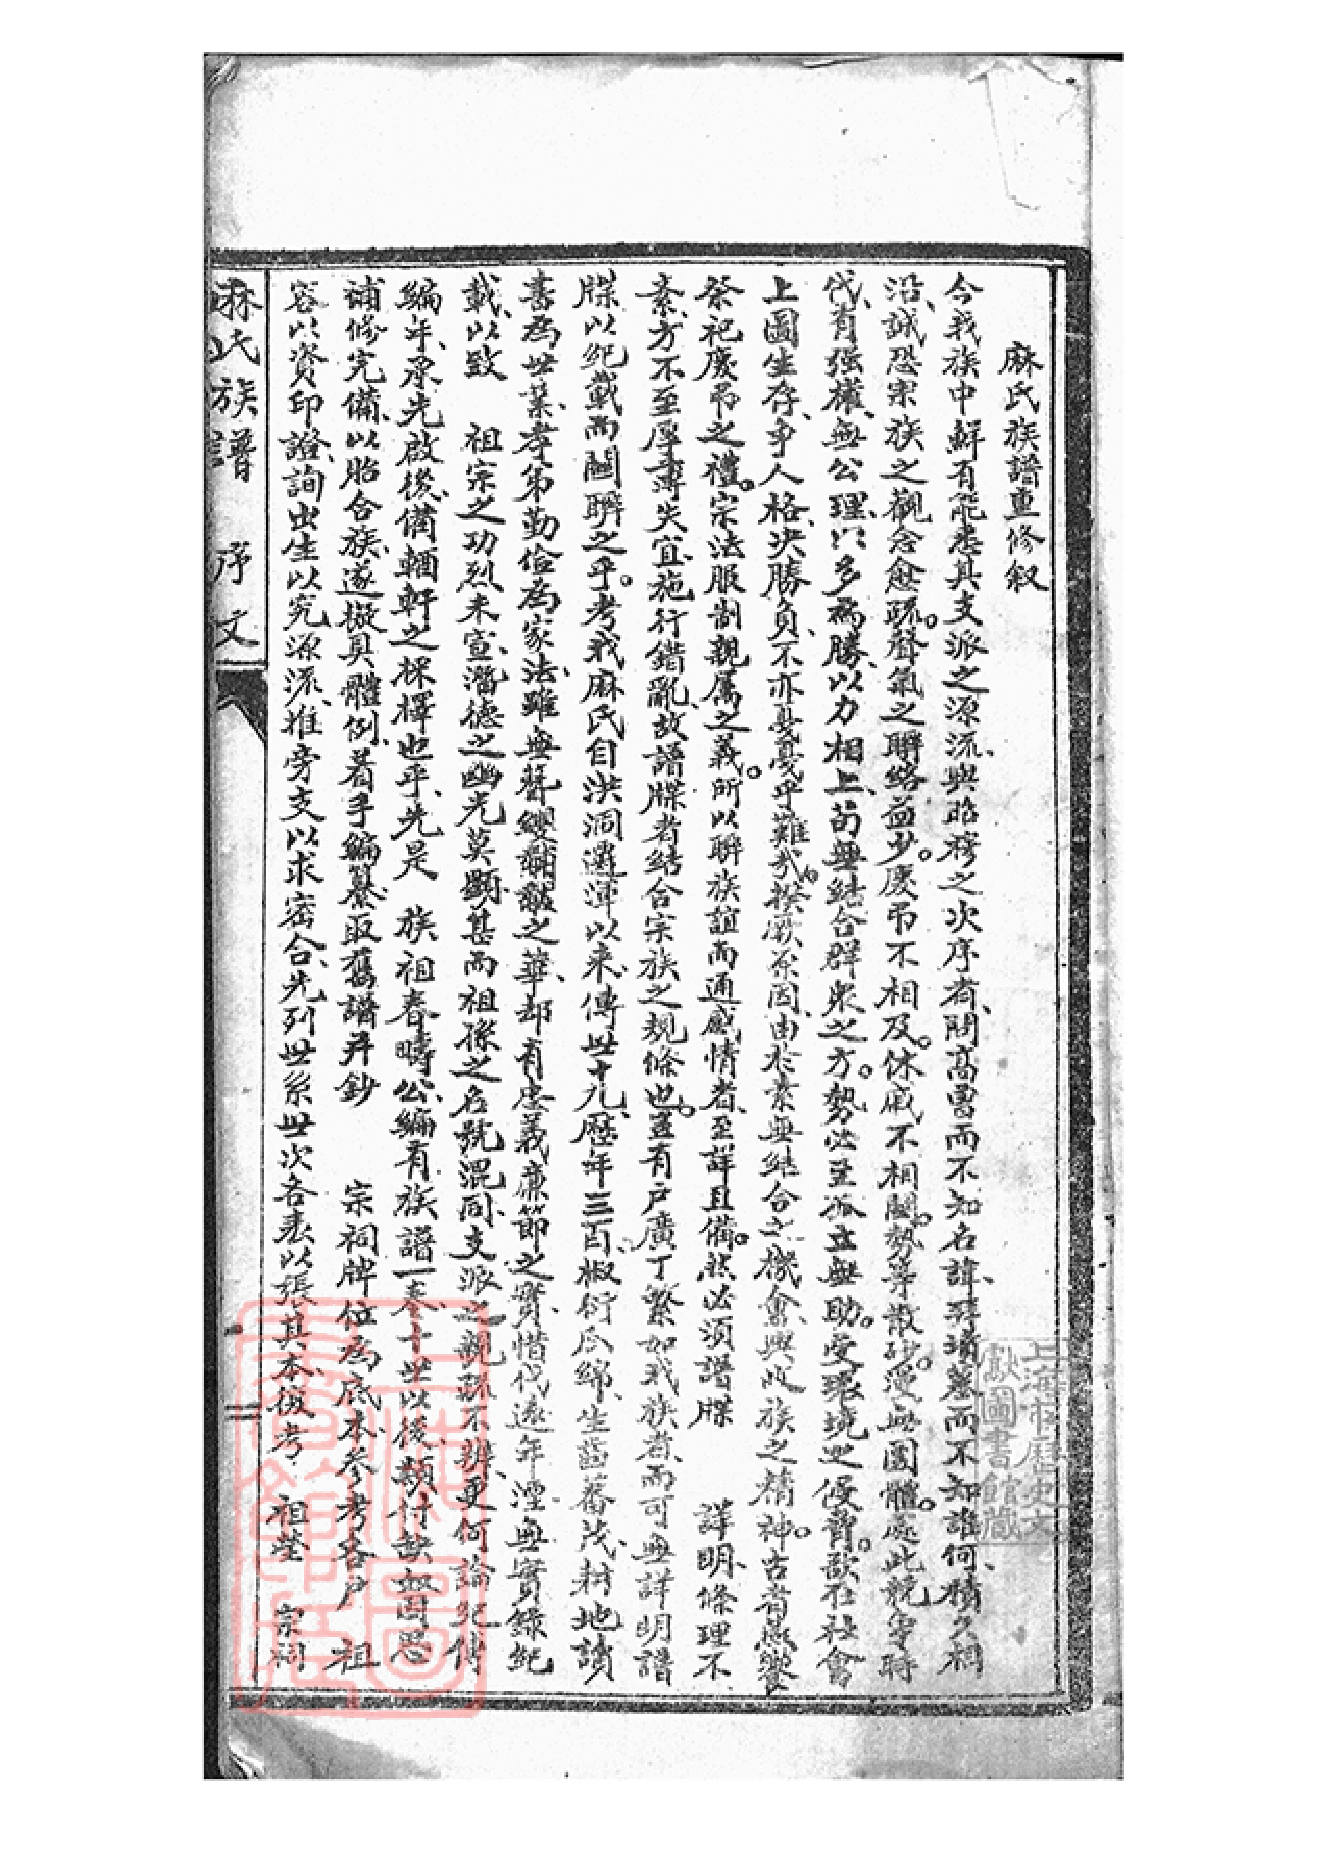 麻氏族譜重修叙
今我族中鮮有能悉其支派之源流、與昭穆之次序者、問高曾而不知名諱、拜墳墓而不知誰何、積久相
沿、誠恐宗族之觀念愈疏。聲氣之聯絡益少。慶吊不相及。休戚不相關。勢等散砂。漫無團體。處此競爭時
代、有强權、無公理、以多為勝、以力相上、苟無結合群衆之方。勢必至孤立無助。受環境之侵脅。欲在社會
上圖生存、爭人格、决勝負、不亦戛戛乎難哉。揆厥原因、由於素無結合之機會、與收族之精神。古者燕饗
祭祀慶吊之禮。宗法服制親属之義。所以聯族誼而通感情者、至詳且備。然必須譜牒 詳明、條理不
紊、方不至厚薄失宜、施行錯亂、故譜牒者結合宗族之規條也。豈有户廣丁繁如我族者、而可無詳明譜
牒以紀載而關聯之乎。考我麻氏自洪洞遷渾以来、傳世十九、歷年三百、椒衍瓜綿、生齒蕃茂、耕地讀
書為世業、孝弟勤儉為家法、雖無簪纓黼黻之華、却有忠義廉節之實、惜代遠年湮、無實錄紀
載、以致 祖宗之功烈未宣、潛德之幽光莫顯、甚而祖孫之名號混同、支派之親疏不辨、更何論紀傳
編年、承先啟後、備輶軒之採擇也乎、先是 族祖春疇公、編有族譜一卷、十世以後、類付缺如、因思
補修完備、以胎合族、遂擬具體例、着手編纂、取舊譜并鈔 宗祠牌位為底本、參考各户 祖
容以資印證、詢出生以究源流、推旁支以求密合、先列世系世次各表以張其本、復考 祖塋 宗祠
麻氏族譜 序文
上海市歷史文
獻圖書館藏